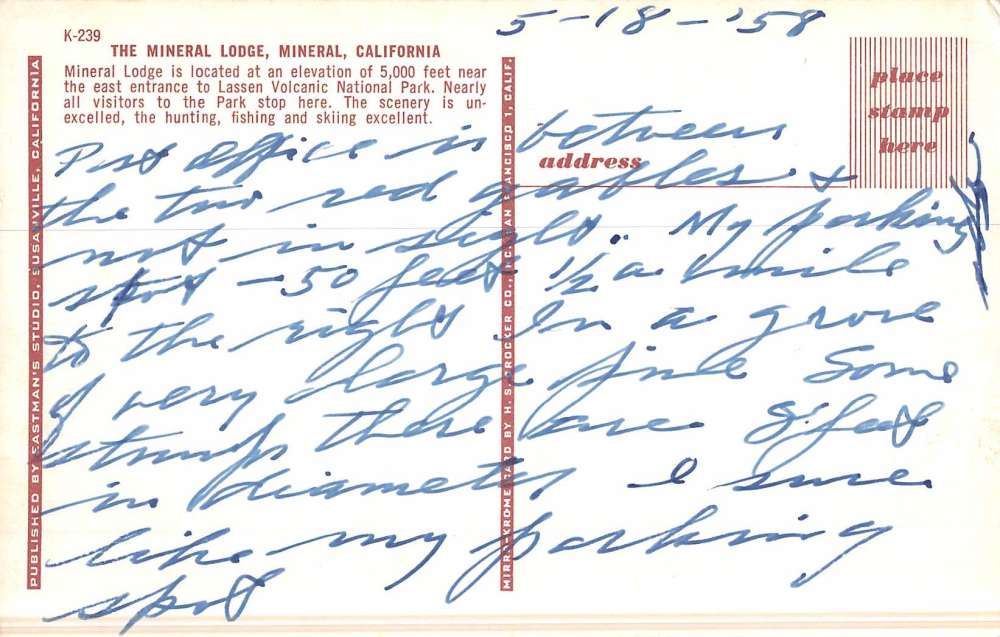 K-239
THE MINERAL LODGE, MINERAL, CALIFORNIA
Mineral Lodge is located at an elevation of 5,000 feet near
the east entrance to Lassen Volcanic National Park. Nearly
all visitors to the Park stop here. The scenery is un-
excelled, the hunting, fishing and skiing excellent.
5-18-'58
place
stamp
here
address
Post office is between
the two red gables &
not in sight. My parking
spot - 50 feet 1/2 a mile
to the right In a grove
of very large pine Some
stumps there are 8 feet
in diameter I sure
like my parking
spot
PUBLISHED BY EASTMAN'S STUDIO, SUSANVILLE, CALIFORNIA
MIRRO-KROME CARD BY H. S. CROCKER CO., INC. SAN FRANCISCO 1, CALIF.